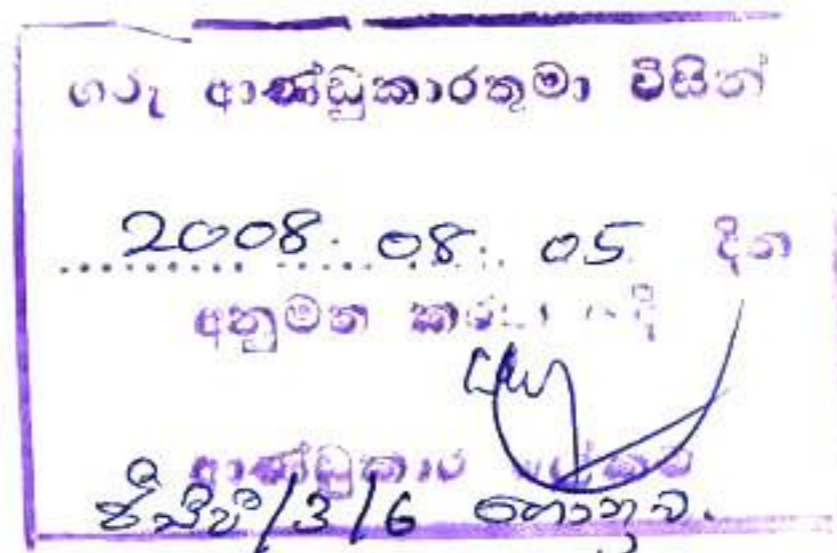 ගරු ආණ්ඩුකාරතුමා විසින්
2008. 08. 05 දින
අනුමත කරන ලදී
ආණ්ඩුකාර ලේකම්
/3/6 ගොනුව.